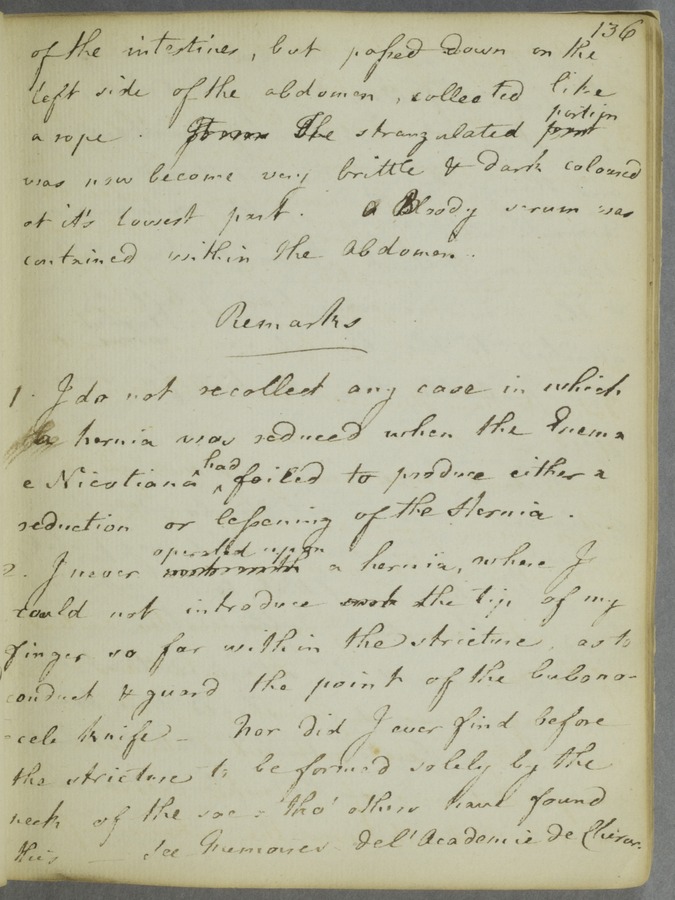 136
of the intestines, but passed down on the
left side of the abdomen, collected like
a rope. The strangulated portion
was now become very brittle & dark coloured
at it's lowest part. A Bloody serum was
contained within the Abdomen.
Remarks
1. I do not recollect any case in which
a hernia was reduced when the Enema
e Nicotiana had failed to produce either a
reduction or lessening of the Hernia.
2. I never operated upon a hernia, where I
could not introduce the tip of my
finger so far within the stricture, as to
conduct & guard the point of the bubono-
cele knife – Nor did I ever find before
the stricture to be formed solely by the
neck of the sac – tho' others have found
this – See Memoires de l'Academie de Chirur.